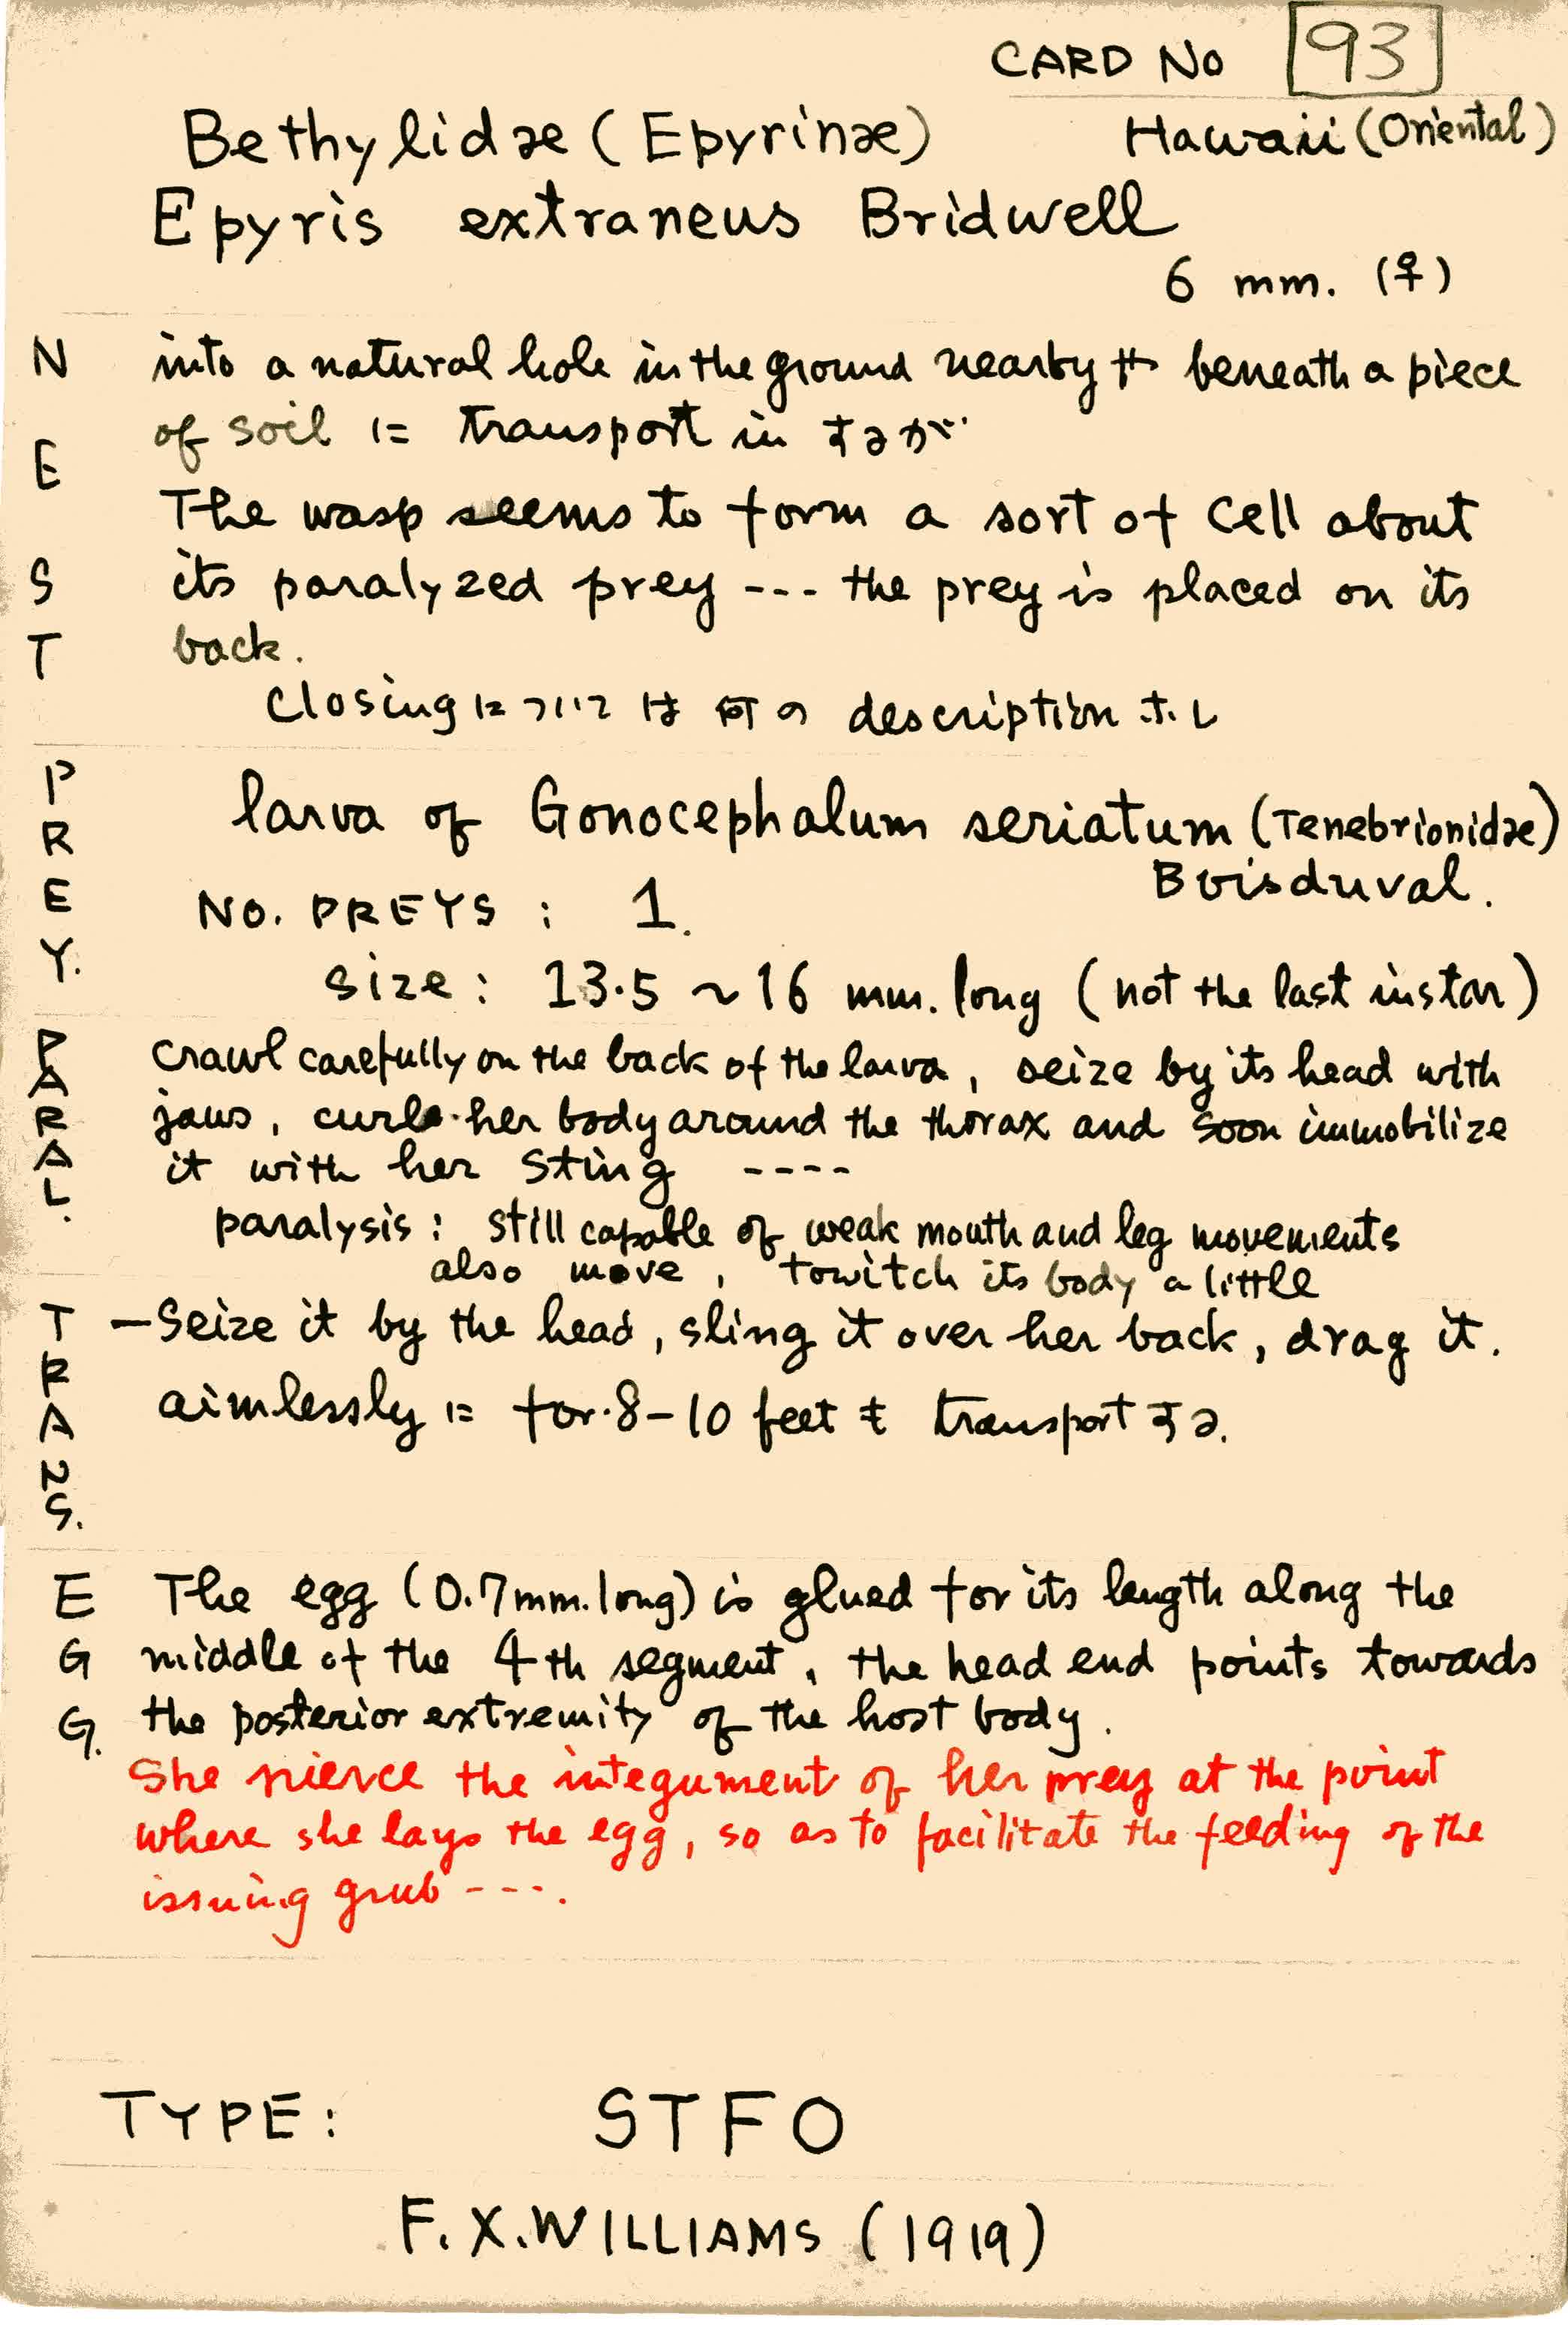 CARD NO 93
Bethylidae (Epyrinae) Hawaii (Oriental)
Epyris extraneus Bridwell
6 mm. (♀)
NEST
into a natural hole in the ground nearby beneath a piece
of soil に transport in するが
The wasp seems to form a sort of cell about
its paralyzed prey --- the prey is placed on its
back.
Closing については 何の description なし
PREY.
larva of Gonocephalum seriatum (Tenebrionidae)
Boisduval.
NO. PREYS : 1.
size : 13.5 ~ 16 mm. long (not the last instar)
PARAL.
crawl carefully on the back of the larva, seize by its head with
jaws, curls her body around the thorax and soon immobilize
it with her sting ----
paralysis : still capable of weak mouth and leg movements
also move, towitch its body a little
TRANS.
—Seize it by the head, sling it over her back, drag it.
aimlessly に for 8-10 feet も transport する.
EGG.
The egg (0.7mm. long) is glued for its length along the
middle of the 4th segment, the head end points towards
the posterior extremity of the host body.
She pierce the integument of her prey at the point
where she lays the egg, so as to facilitate the feeding of the
issuing grub ---.
TYPE: STFO
F. X. WILLIAMS (1919)